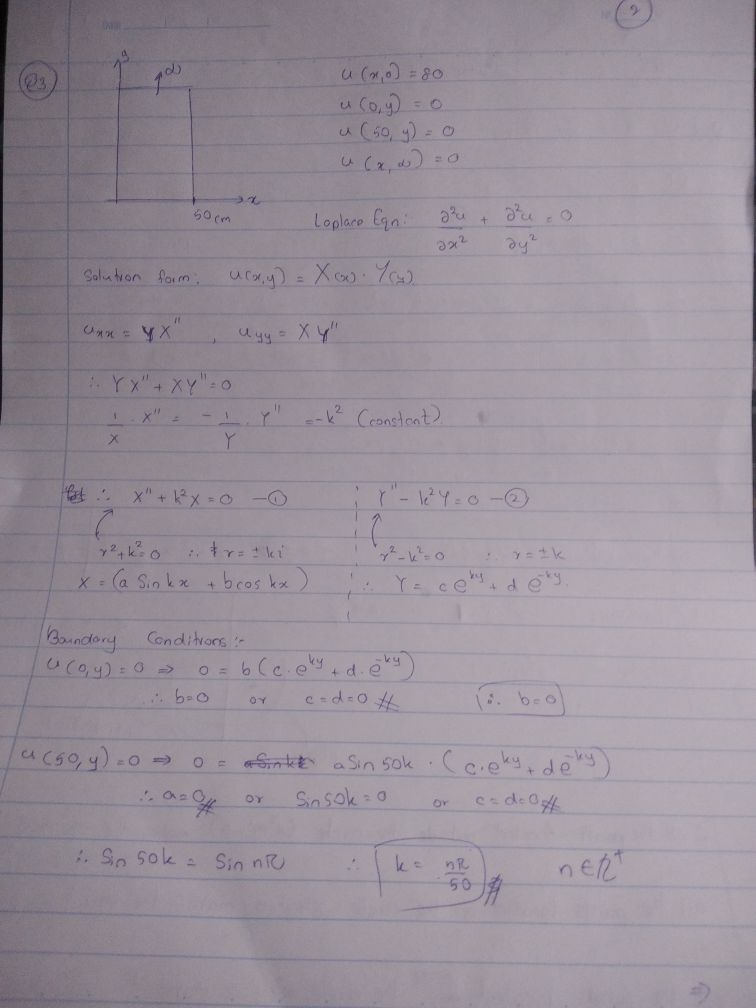 2
Q3
y
∞
x
50cm
u(x,0) = 80
u(0,y) = 0
u(50,y) = 0
u(x,∞) = 0
Laplace Eqn: ∂²u/∂x² + ∂²u/∂y² = 0
Solution form: u(x,y) = X(x) · Y(y)
uxx = YX'' , uyy = XY''
∴ YX'' + XY'' = 0
1/X · X'' = - 1/Y · Y'' = -k² (constant)
∴ X'' + k²X = 0 —①
r² + k² = 0 ∴ r = ± ki
X = (a Sin kx + b cos kx)
Y'' - k²Y = 0 —②
r² - k² = 0 ∴ r = ± k
∴ Y = c e^ky + d e^-ky.
Boundary Conditions :-
u(0,y) = 0 ⇒ 0 = b(c.e^ky + d.e^-ky)
∴ b=0 or c=d=0 ∴ b=0
u(50,y) = 0 ⇒ 0 = a Sin 50k · (c.e^ky + d e^-ky)
∴ a=0 or Sin 50k = 0 or c=d=0
∴ Sin 50k = Sin nπ ∴ k = nπ/50 n∈ℤ⁺
⇒